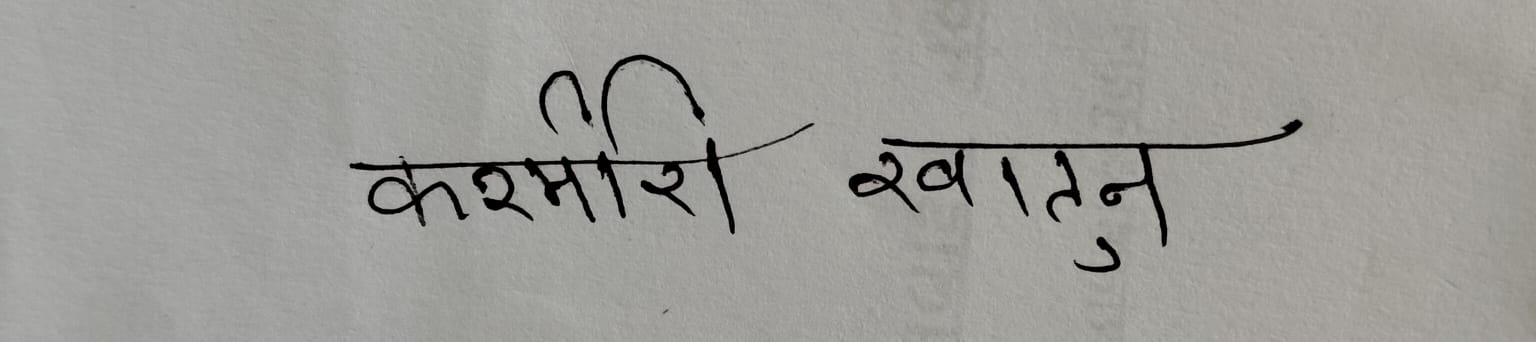 कश्मीरी खातुन